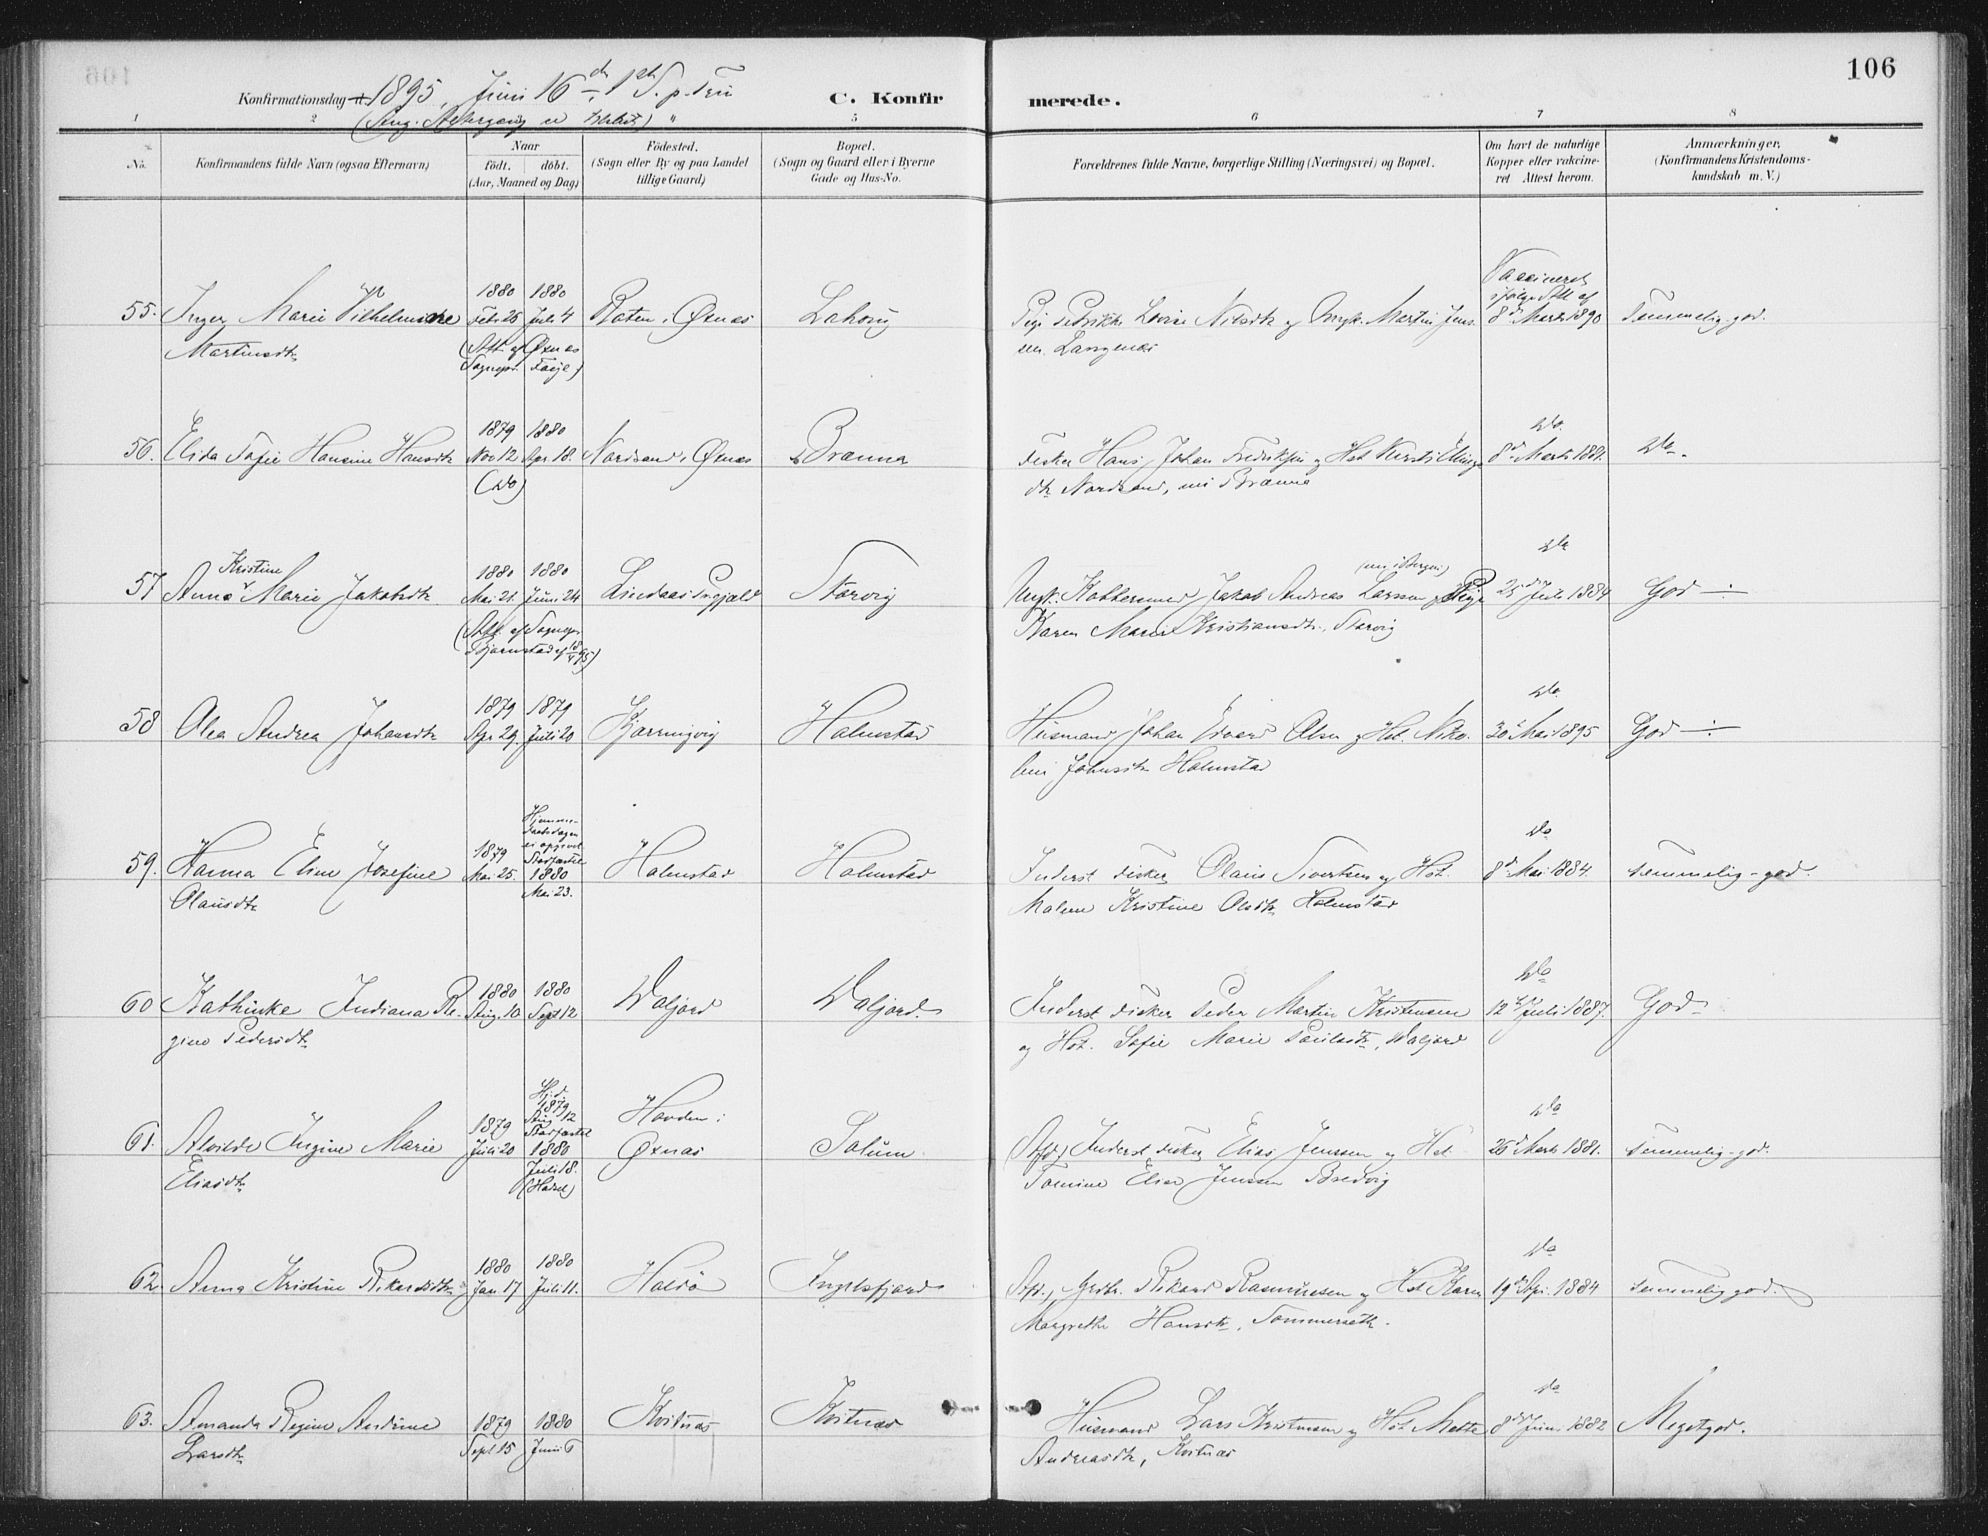 106
Konfirmationsdag d. 1895, Juni 16d, 1ste S. p. Tri
C. Konfirmerede.
1 2 5 6 7 8
No.
Konfirmandens fulde Navn (ogsaa Efternavn)
Naar
født. døbt.
(Aar, Maaned og Dag)
Fødested.
(Sogn eller By og paa Landet
tillige Gaard)
Bopæl.
(Sogn og Gaard eller i Byerne
Gade og Hus-No.
Forældrenes fulde Navne, borgerlige Stilling (Næringsvei) og Bopæl.
Om havt de naturlige
Kopper eller vakcine-
ret Attest herom.
Anmærkninger,
(Konfirmandens Kristendoms-
kundskab m. V.)
55. Inger Marie Vilhelmine
Martinsdtr
1880 Febr 25
1880 Juli 4
(Att. af Øxnes
Sognepr. Falye)
Øxnes
Pige Fredrikke Lovise Nilsdtr og Ungk. Martin Jens-
sen. Langenes
Vaccineret
ifølge Att af
8d Marts 1890
Temmelig god.
56. Elida Sofie Hansine Hansdtr
1879 Nov 12
1880 Apr 18.
(Do)
Nordsand, Øxnes
Brænna
Fisker Hans Johan Fredriksen og Hst
dtr Nordsand, nu i Brænna
Do.
8d Marts 1881.
Do.
57 Anna Kristine Marie Jakobsdtr
1880 Mai 21.
1880 Juni 24
(Att. af Sognepr
Bjørnstad af 18/4 95)
Lindaas Prgjæld
Storvig
Ungk. Jakob Andreas Larssen (nu i Bergen) og Pige
Karen Marie Kristiansdtr, Storvig
Do
25d Juli 1884
God
58 Olea Andrea Johansdtr
1879 Apr 29.
1879 Juli 20
Kjærringvig
Holmstad
Husmand Johan Edvard Olsen og Hst. Niko-
line Johnsdtr Holmstad
Do.
30d Mai 1895
God
59. Hanna Eline Josefine
Olausdtr
1879 Mai 25.
Hjemme-
daabsdagen
ei opgivet
Stadfæstet
1880
Mai 23.
Holmstad
Holmstad
Inderst Fisker Olaus Sivertsen og Hst.
Malene Kristine Olsdtr Holmstad
Do
8d Mai 1884.
temmelig-god.
60 Kathinke Indiana Re-
gine Pedersdtr
1880 Aug. 10
1880 Sept 12
Valjord
Valjord.
Inderst Fisker Peder Martin Kristensen
og Hst. Sofie Marie Paulsdtr, Valjord
Do
12d Juli 1887.
God
61. Alvilde Ingine Marie
Eliasdtr
1879 Juli 20
Hj. d.
1879
Aug 12
Stadfæstet
1880
Juli 18.
(Hadsel)
Hovden i
Øxnæs
Solum
Afd. Inderst Fisker Elias Jenssen og Hst
Tomine Elise Jenssen Bredvig
Do
26d Marts 1881.
temmelig-god.
62. Anna Kristine Rikardsdtr
1880 Jan 17
1880 Juli 11.
Ingelsfjord
Afd., Grdbr. Rikard Rasmussen og Hst Karen
Margrethe Hansdtr, Sommersæth.
Do
19d Apr. 1884
temmelig god.
63. Amanda Regine Andrine
Larsdtr
1879 Sept 15
1880 Juni 6
Kvitnæs
Kvitnæs
Husmand Lars Kristensen og Hst Mette
Andreasdtr, Kvitnæs
Do
8d Juni 1882
Megetgod.